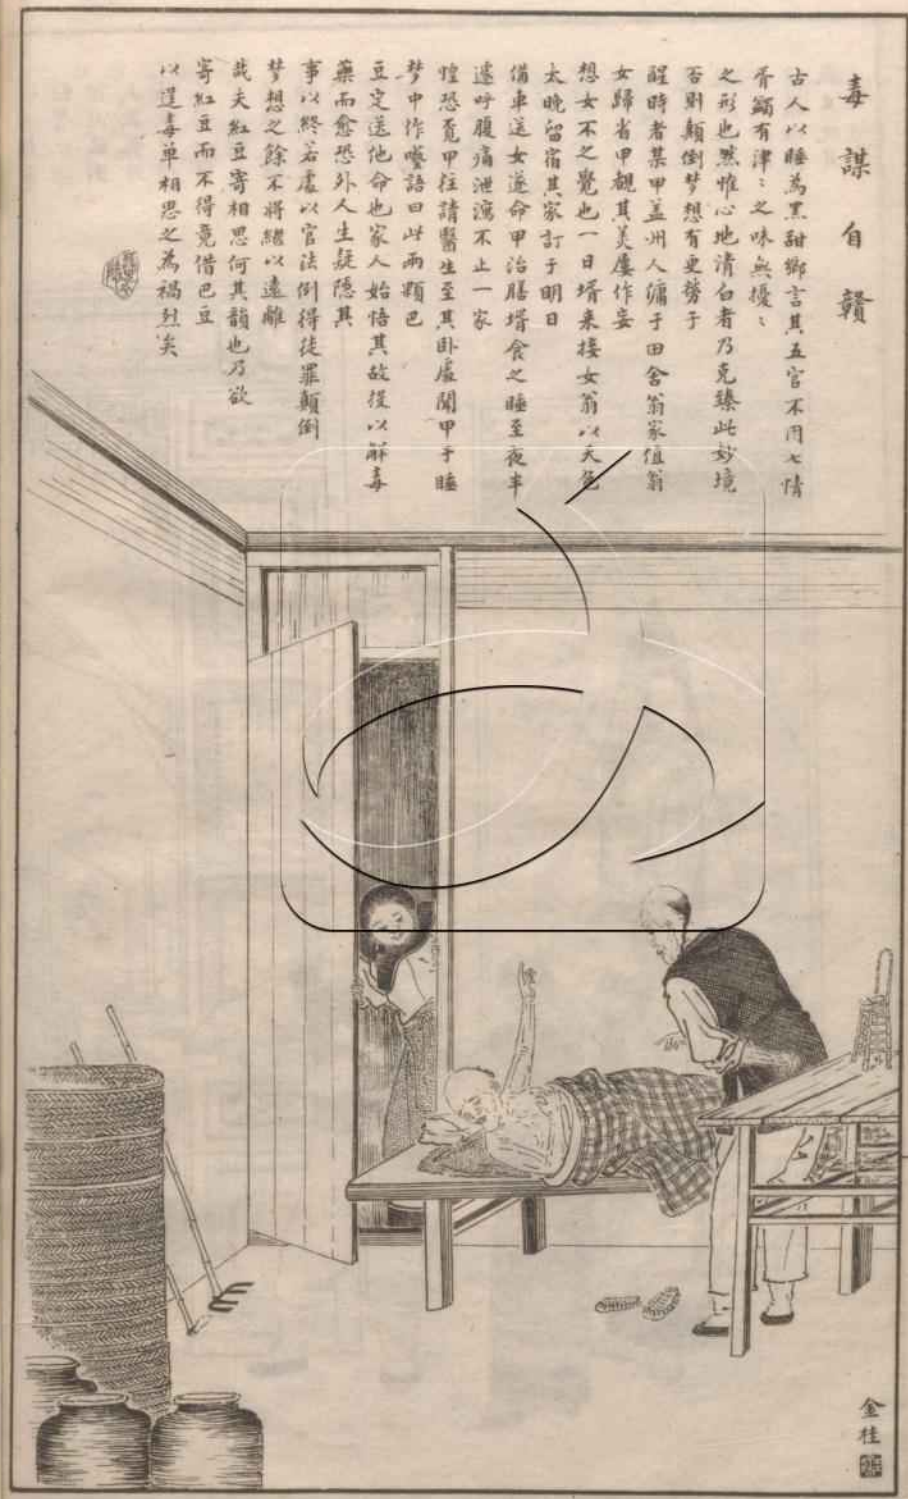 毒謀自贛
古人以睡為黑甜鄉言其五官不用七情
胥蠲有津〻之味無擾〻
之形也然惟心地清白者乃克臻此妙境
否則顛倒夢想有更勞于
醒時者某甲蓋州人傭于田舍翁家值翁
女歸省甲覩其美屢作妄
想女不之覺也一日壻來接女翁以天色
太晚留宿其家訂于明日
借車送女遂命甲治膳壻食之睡至夜半
遽呼腹痛泄瀉不止一家
惶恐覓甲往請醫生至其卧處聞甲于睡
梦中作囈語曰此兩顆巴
豆定送他命也家人始悟其故後以解毒
藥而愈恐外人生疑隱其
事以終若處以官法倒得徒罪顛倒
梦想之餘不將繼以遠離
哉夫紅豆寄相思何其韻也乃欲
寄紅豆而不得竟借巴豆
以逞毒單相思之為禍烈矣
金桂